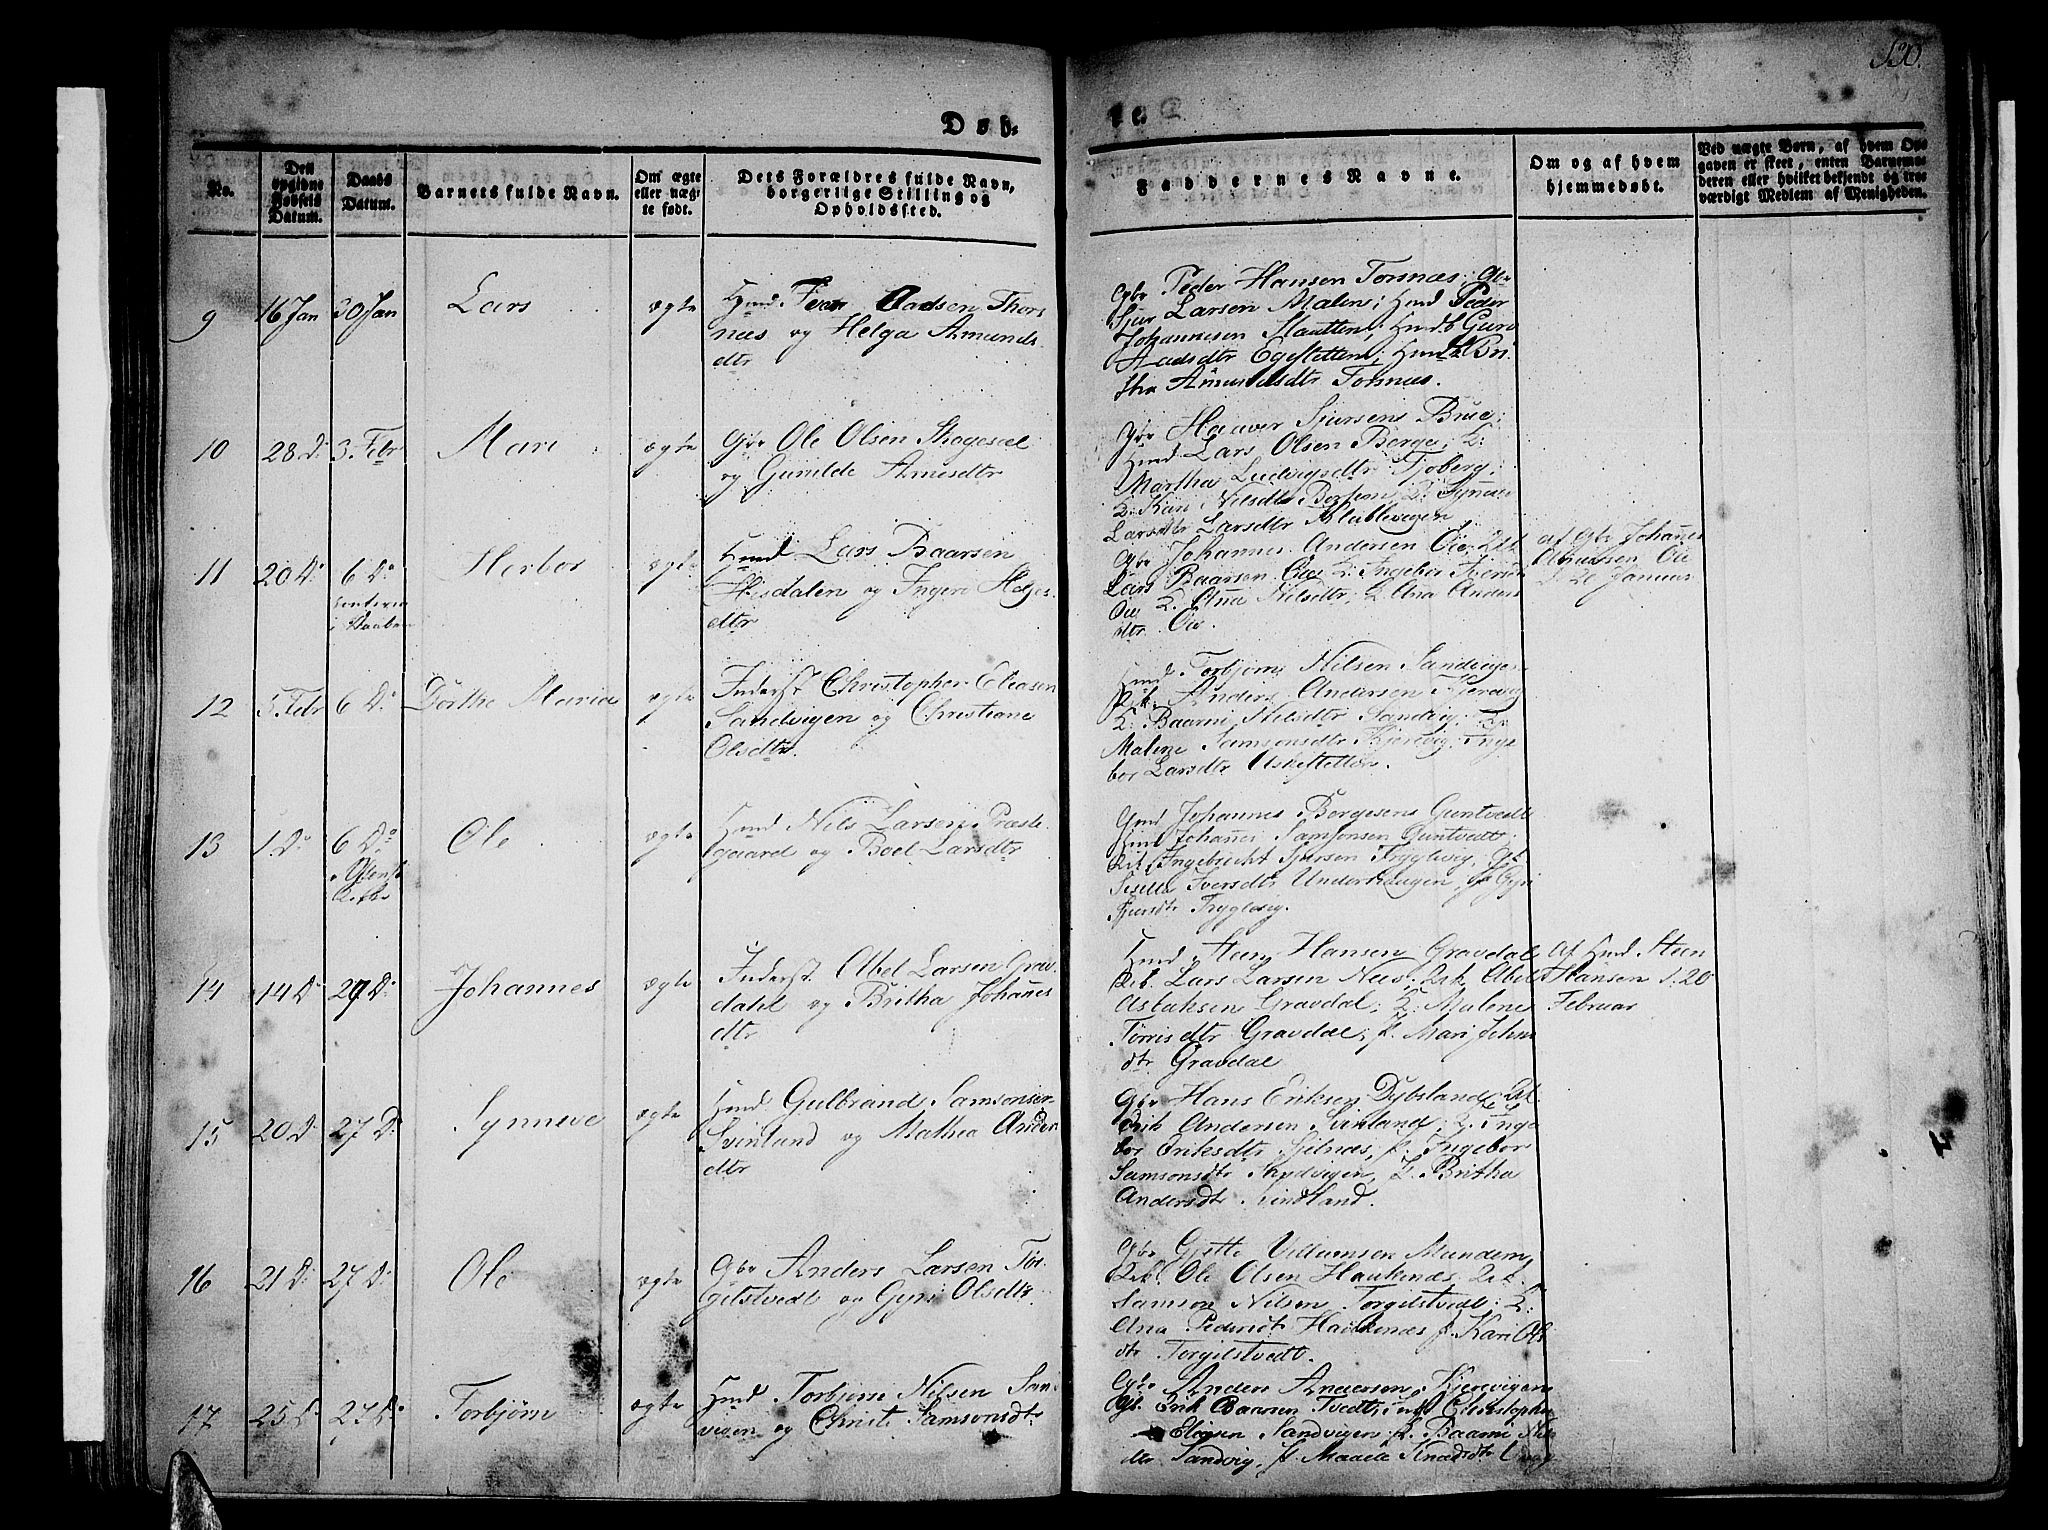 130.
Døb-
te.
No.
Den opgivne Fødsels Datum.
Daabs Datum.
Barnets fulde Navn.
Om ægte eller uægte født.
Dets Forældres fulde Navn, borgerlige Stilling og Opholdssted.
Faddernes Navne.
Om og af hvem hjemmedøbt.
Ved uægte Børn, af hvem Opgaven er skeet, enten Barnemoderen eller hvilket bekjendt og troværdigt Medlem af Menigheden.
9 16 Jan 30 Jan Lars ægte
Hmd. Iver Aadsen Thors
næs og Helga Amunds
dtr
Gbr Peder Hansen Torsnæs; Gbr
Sjur Larsen Malen; Hmd Peder
Johannesen Slaatten; Hmdk Guro
Aadsdtr Egesletten; Hmdk Bri
tha Amundsdtr Torsnæs.
10 28 D: 3. Febr Mari ægte
Gbr Ole Olsen Skogesæl
og Gunilde Arnesdtr
Gbr Haaver Sjursen Brue;
Hmd Lars Olsen Berge; P:
Martha Ludvigsdtr Fjøberg;
P: Kari Nilsdtr; P. Synneve
Larsdtr Larsdtr
11 20 D: 6 D: Herbor ægte
i Daaben
Hmd Lars Baarsen
dalen og Inger Helges
dtr
Gbr Johannes Andersen Oie;
Lars Baarsen Oie; P. Ingebor
Oie P. Anna Nilsdtr; P. Ana Anders
dtr Oie.
af Gbr Johanes
Oie
D 20 Januar
12 5. Febr 6 D: Dorthe Maria ægte
Inderst Christopher Eliasen
Sandvigen og Christiane
Olsdtr.
Hmd Torbjørn Nilsen Sandvigen
Anders Andersen Kjerevig
P. Baarni Nilsdtr Sandvig; P.
Malene Samsonsdtr Kjerevig; Inge
bor Larsdtr
13 1. D: 6 D: Ole ægte
Hmd Nils Larsen Præste
gaard og Boel Larsdtr
Hmd Johannes Borgesens Guntvedt
Hmd Johannes Samsonsen Guntvedt;
Ingebricht Sjursen Tryglevig;
Sisella Iversdtr Underhaugen, P Gyri
Sjursdtr Tryglevig.
14 14 D: 27 D: Johannes ægte
Inderst. Abel Larsen Grav
dahl og Britha Johanes
dtr
Hmd Steen Hansen Gravdal
Lars Larsen Nees; Abel
Aslaksen Gravdal; P. Malene
Tørrisdtr Gravdal; P. Mari Johns
dtr Gravdal
Af Hmd Steen
Hansen d. 20
Februar
15 20 D: 27 D: Synneve ægte
Hmd Gulbrand Samsonsen
Svinland og Mathea Anders
dtr
Gbr Hans Eriksen Dybsland;
Erik Andersen Svinland; P. Inge
bor Eriksdtr Sjelnæs, P. Ingebor
Samsonsdtr, P. Britha
Andersdtr
16 21 D: 27 D: Ole ægte
Gbr Anders Larsen Tor
gilstvedt og Gyri Olsdtr.
Gbr Gjøtte Villumsen Mundem
Ole Olsen Haukenæs,
Samson Nilsen Torgilstvedt; P:
Ana Pedersdtr Haukenæs P. Kari Ols
dtr Torgilstvedt.
17 25 D. 27 D. Torbjørn ægte
Hmd Torbjørn Nilsen San
vigen og Christi Samsonsdtr
Gbr Anders Andersen Kjerevigen
Erik Baarsen Tvedt; Christopher
Eliasen Sandvigen P. Baarni Nils
dtr Sandvig, P. Maaela Knudsdtr